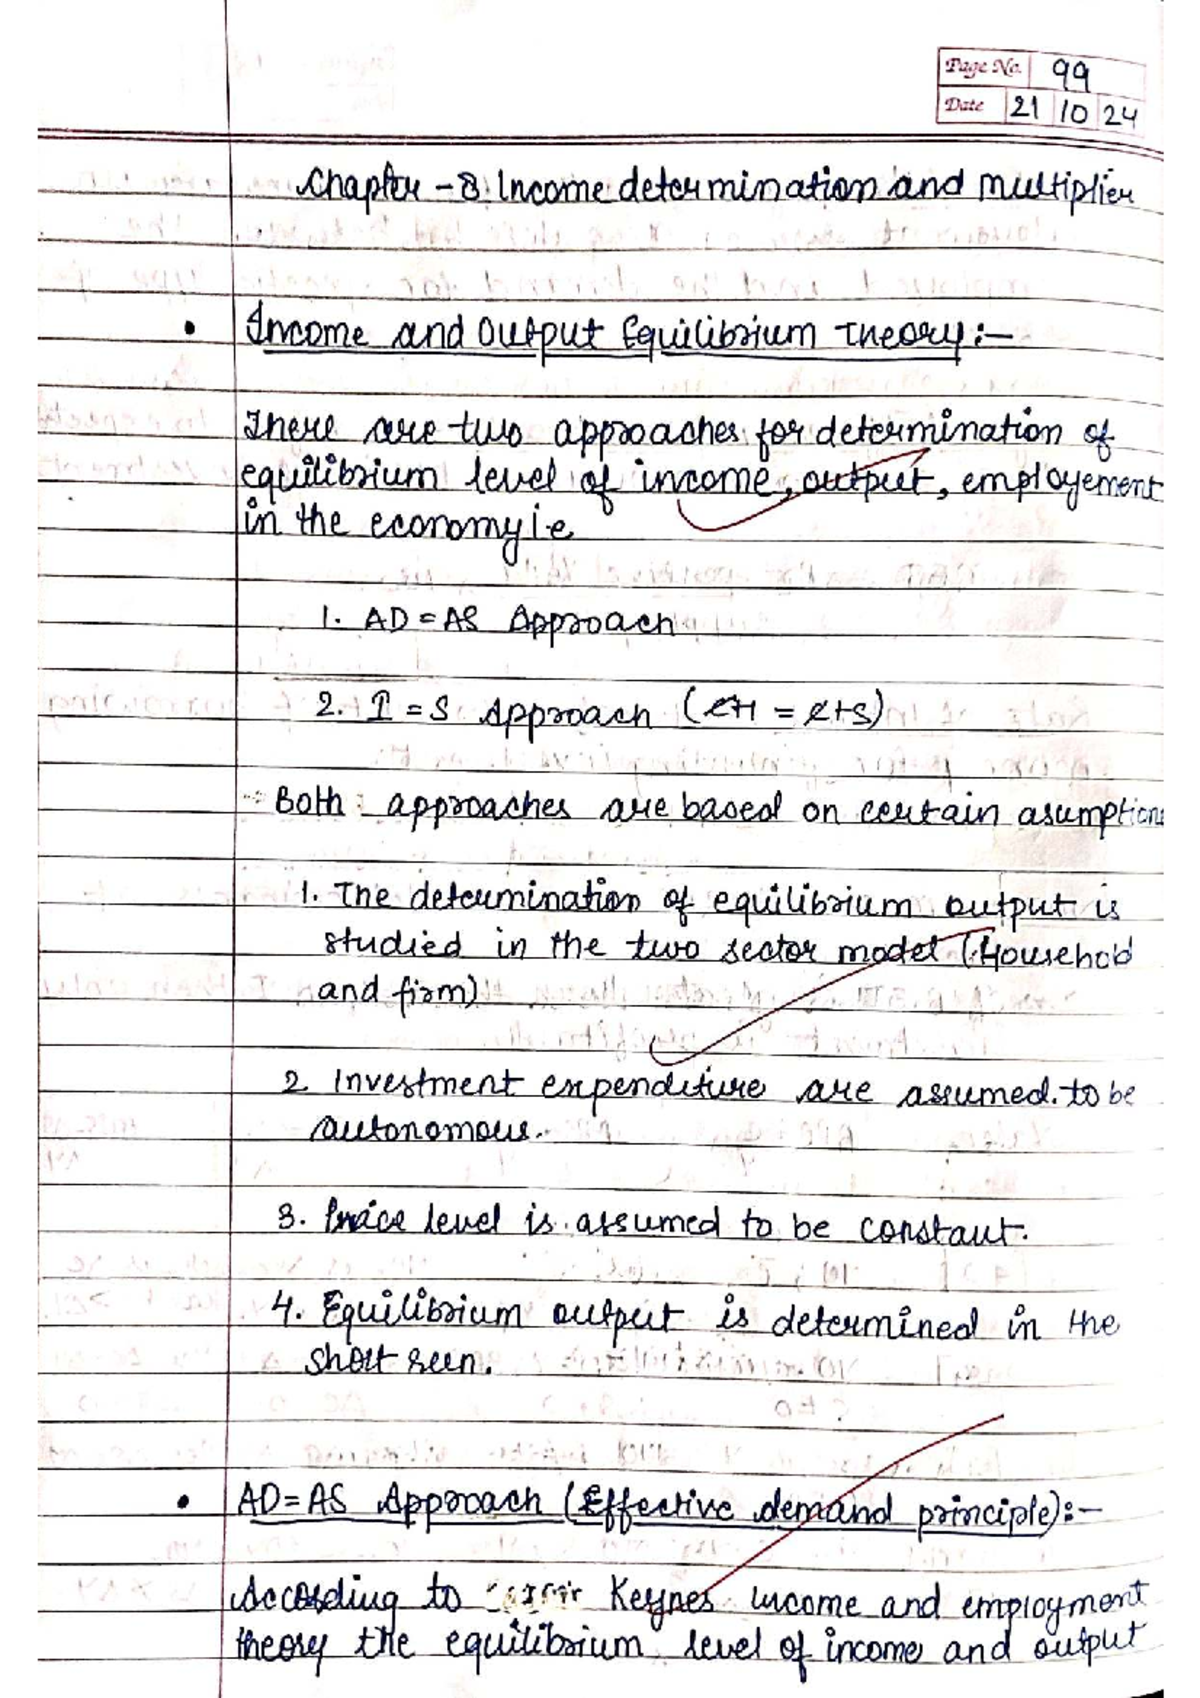 Page No. 99
Date 21 10 24
Chapter - 8 Income determination and multiplier
• Income and Output Equilibrium Theory :-
There are two approaches for determination of
equilibrium level of income, output, employement
in the economy i.e
1. AD = AS Approach
2. I = S Approach (C+I = C+S)
Both approaches are based on certain asumptions
1. The determination of equilibrium output is
studied in the two sector model (Household
and firm)
2 Investment expenditure are assumed to be
autonomous.
3. Price level is assumed to be constant.
4. Equilibrium output is determined in the
short run.
• AD = AS Approach (Effective demand principle) :-
According to Keynes income and employment
theory the equilibrium level of income and output